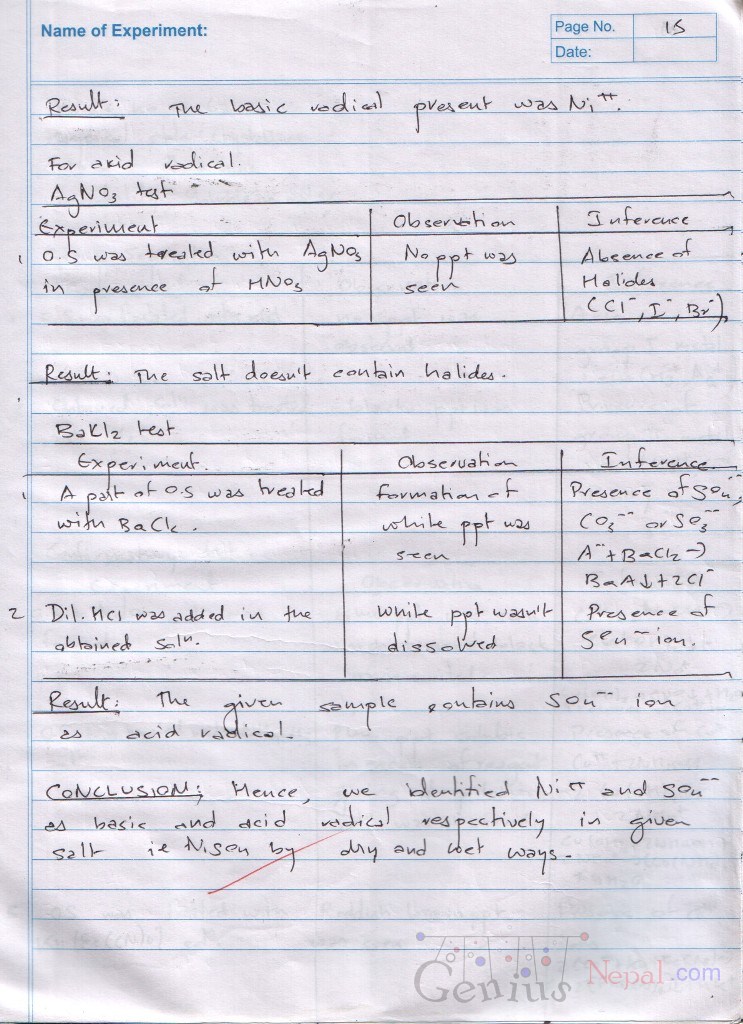 Name of Experiment:
Page No. 15
Date:
Result: The basic radical present was Ni++.
For acid radical.
AgNO3 test -
Experiment Observation Inference
1 O.S was treated with AgNO3 No ppt was Absence of
in presence of HNO3 seen Halides
(Cl-, I-, Br-)
Result: The salt doesn't contain halides.
BaCl2 test
Experiment. Observation Inference
1 A part of O.S was treated formation of Presence of SO4--,
with BaCl2. white ppt was CO3-- or SO3--
seen A-- + BaCl2 →
BaA↓ + 2Cl-
2 Dil. HCl was added in the White ppt wasn't Presence of
obtained soln. dissolved SO4-- ion.
Result: The given sample contains SO4-- ion
as acid radical.
CONCLUSION: Hence, we identified Ni++ and SO4--
as basic and acid radical respectively in given
salt ie NiSO4 by dry and wet ways.
Genius Nepal.com